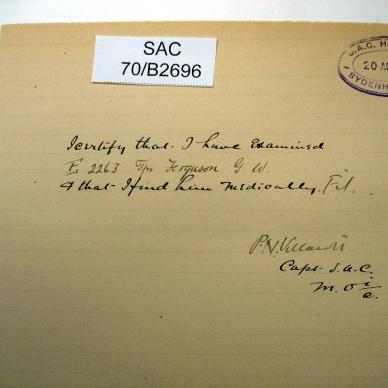 SAC
70/B2696
S.A.C. H
20 A
SYDENH
I certify that I have Examined
E 2263 Tpr Ferguson G. W.
& that I find him Medically Fit.
Capt S.A.C.
M.O i/c.